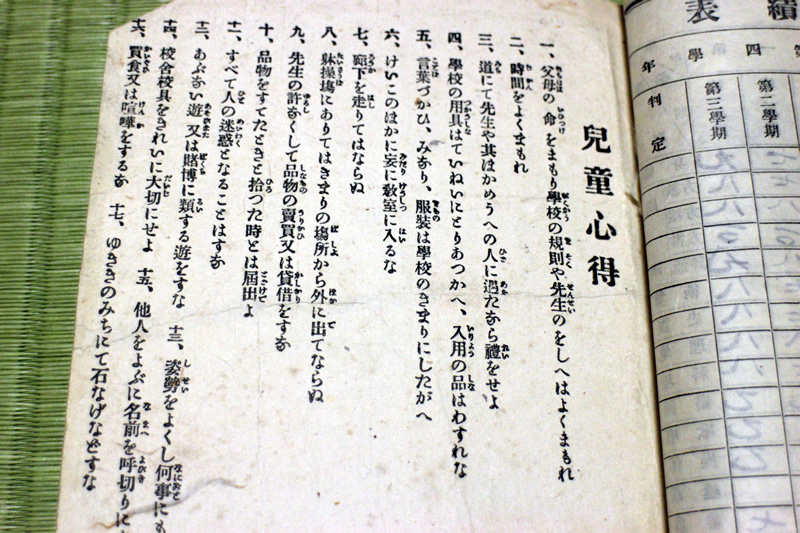 績表
四學年
第二學期
判定
第三學期
兒童心得
一、父母の命をまもり學校の規則や先生のをしへはよくまもれ
二、時間をよくまもれ
三、道にて先生や其ほかめうへの人に遇たなら禮をせよ
四、學校の用具はていねいにとりあつかへ、入用の品はわすれな
五、言葉づかひ、みなり、服装は學校のきまりにしたがへ
六、けいこのほかに妄に敎室に入るな
七、廊下を走りてはならぬ
八、躰操塲にありてはきまりの塲所から外に出てならぬ
九、先生の許なくして品物の賣買又は貸借をすな
十、品物をすてたときと拾つた時とは屆出よ
十一、すべて人の迷惑となることはすな
十二、あぶない遊又は賭博に類する遊をすな 十三、姿勢をよくし何事にも
十四、校舍校具をきれいに大切にせよ 十五、他人をよぶに名前を呼切りに
十六、買食又は喧嘩をするな 十七、ゆききのみちにて石なげなどすな